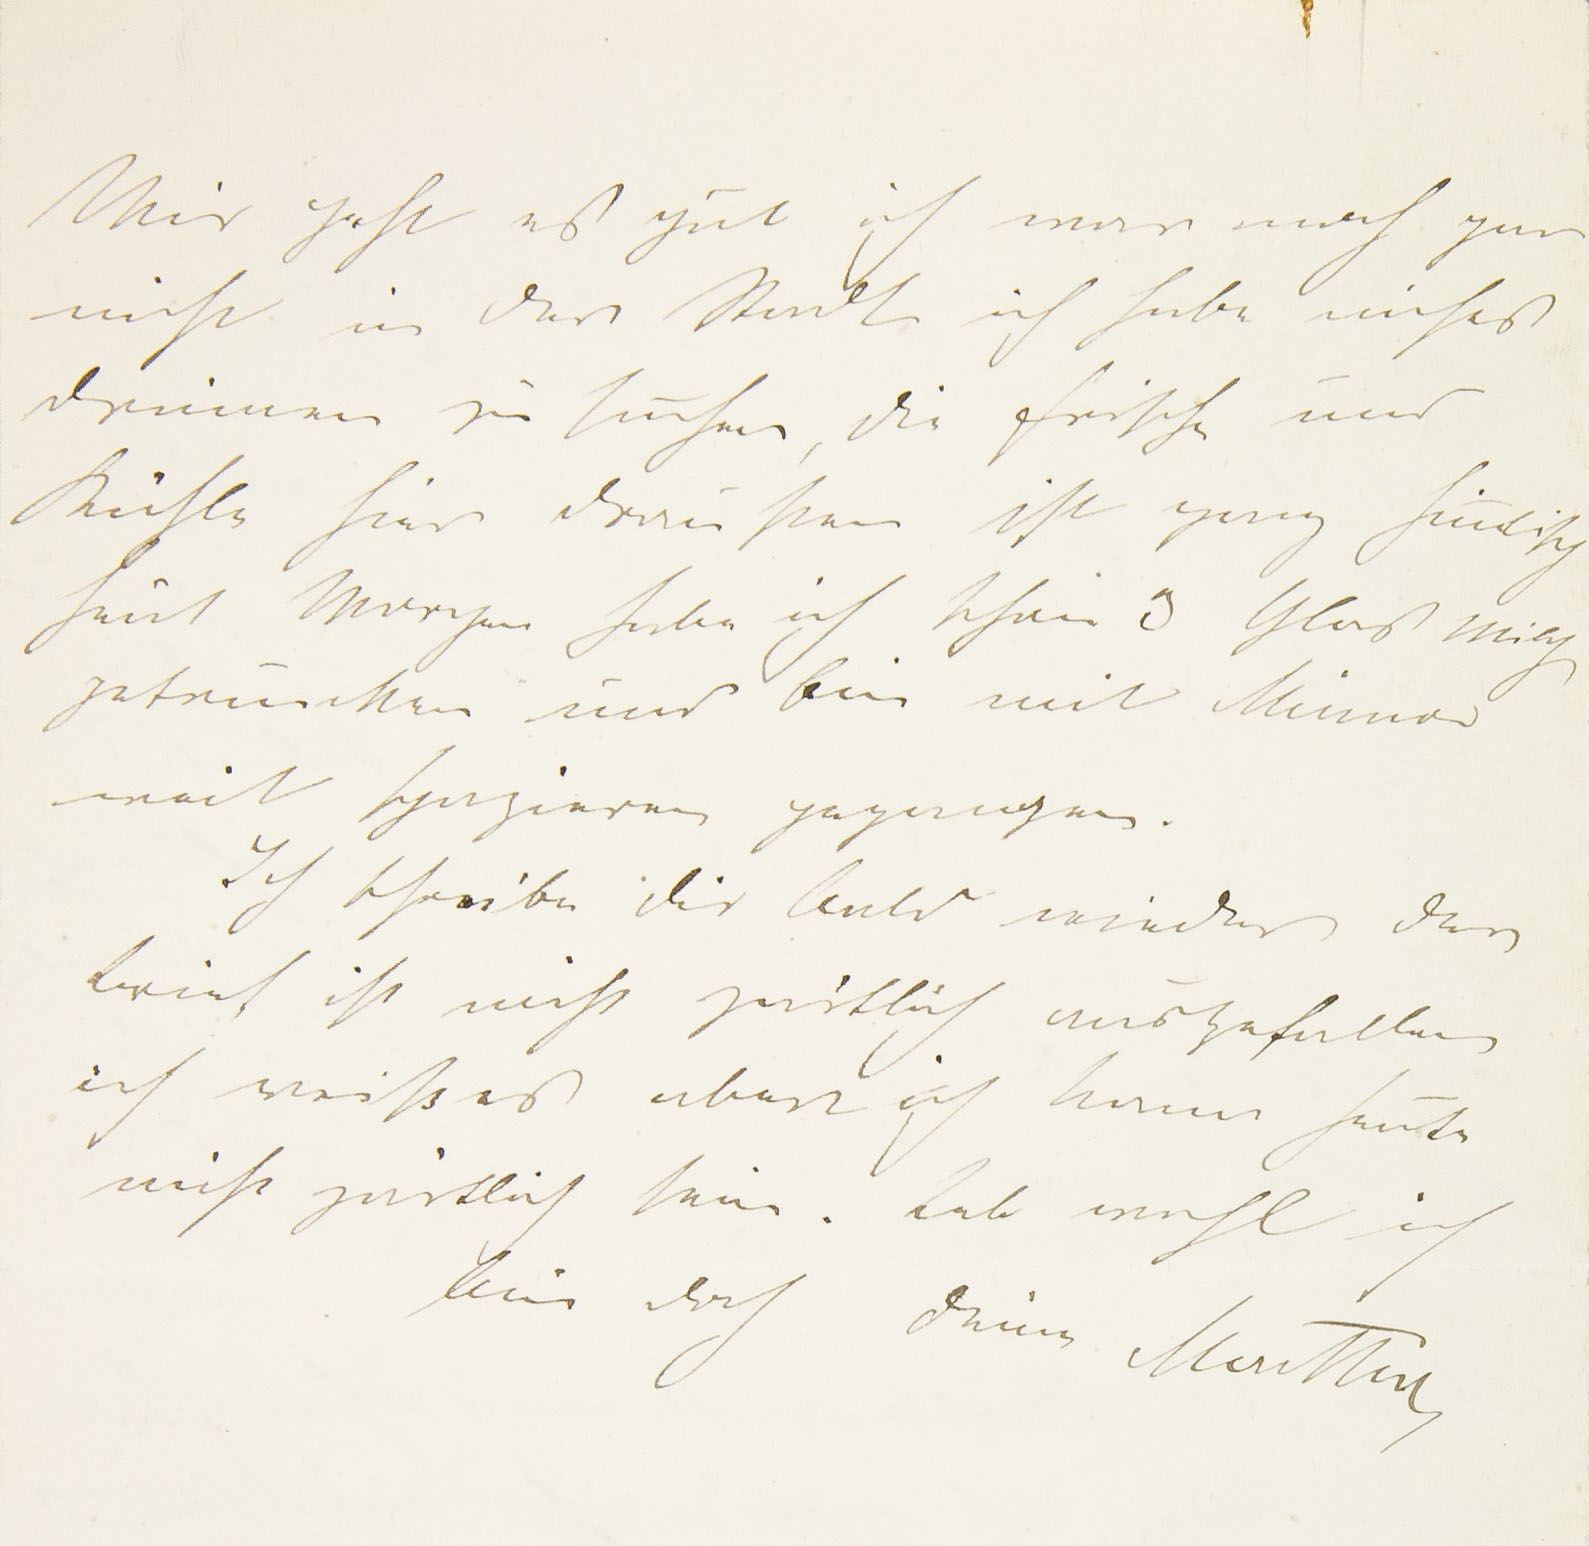 Mir geht es gut ich war noch gar
nicht in der Stadt ich habe nichts
drinnen zu suchen, die frische und
Kühle hier draußen ist ganz
heut Morgen habe ich schon 3 Glas Milch
getruncken und bin mit Minna
weit spazieren gegangen.
Ich schreibe dir bald wieder der
Brief ist nicht zärtlich ausgefallen
ich weiß es aber ich kann heute
nicht zärtlich sein. Leb wohl ich
bin doch deine